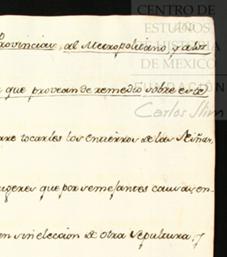 CENTRO DE
ESTUDIOS
DE HISTORIA
DE MEXICO
FUNDACIÓN
Carlos Slim
Provincias, al Metropolitano y a los
que provean de remedio sobre esto
tocarles los Entierros de las Niñas,
mugeres que por semejantes causas en-
sin eleccion de otra sepultura, y